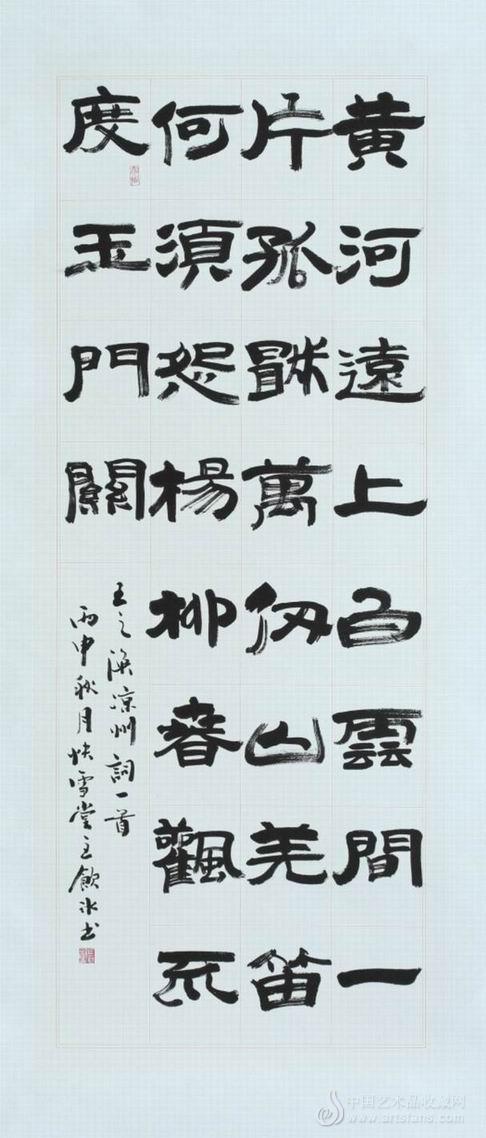 黄河遠上白雲間一
片孤城萬仞山羌笛
何須怨楊柳春飌不
度玉門關
王之渙凉州詞一首
丙申秋月快雪堂主飲冰书
中国艺术品收藏网
www.artsfans.com